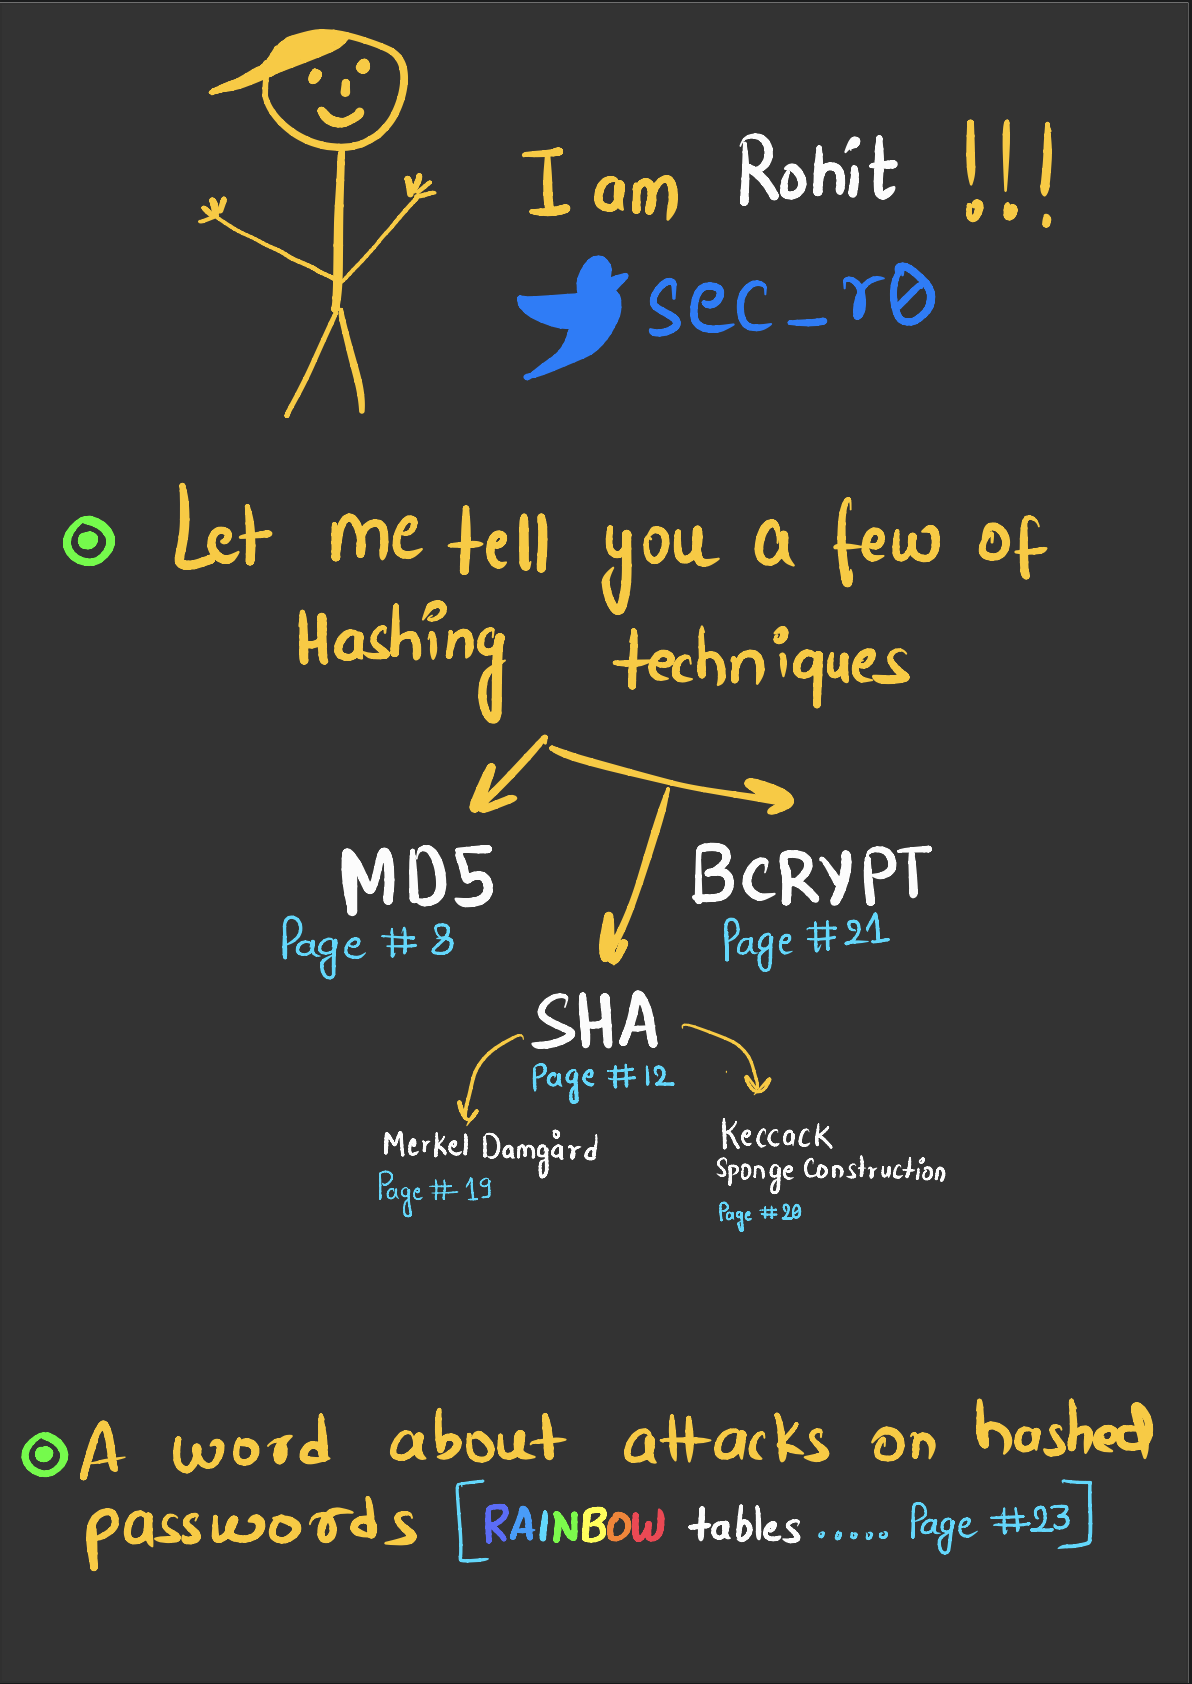 I am Rohit !!!
sec_r0
Let me tell you a few of
Hashing techniques
MD5
Page # 8
BCRYPT
Page # 21
SHA
Page # 12
Merkel Damgård
Page # 19
Keccack
Sponge Construction
Page # 20
A word about attacks on hashed
passwords [RAINBOW tables ..... Page #23]